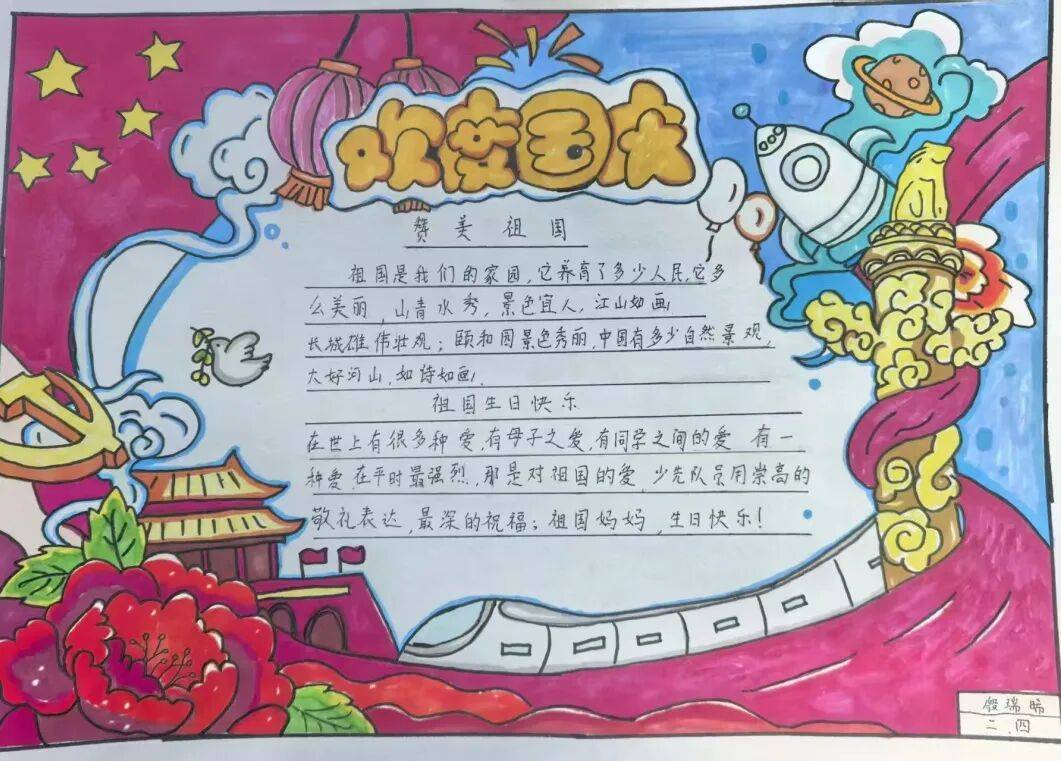 欢度国庆
赞美祖国
祖国是我们的家园，它养育了多少人民，它多
么美丽，山青水秀，景色宜人，江山如画
长城雄伟壮观；颐和园景色秀丽，中国有多少自然景观，
大好河山，如诗如画，
祖国生日快乐
在世上有很多种爱，有母子之爱，有同学之间的爱 有一
种爱，在平时最强烈，那是对祖国的爱，少先队员用崇高的
敬礼表达，最深的祝福；祖国妈妈，生日快乐！
殷瑞晞
二.四